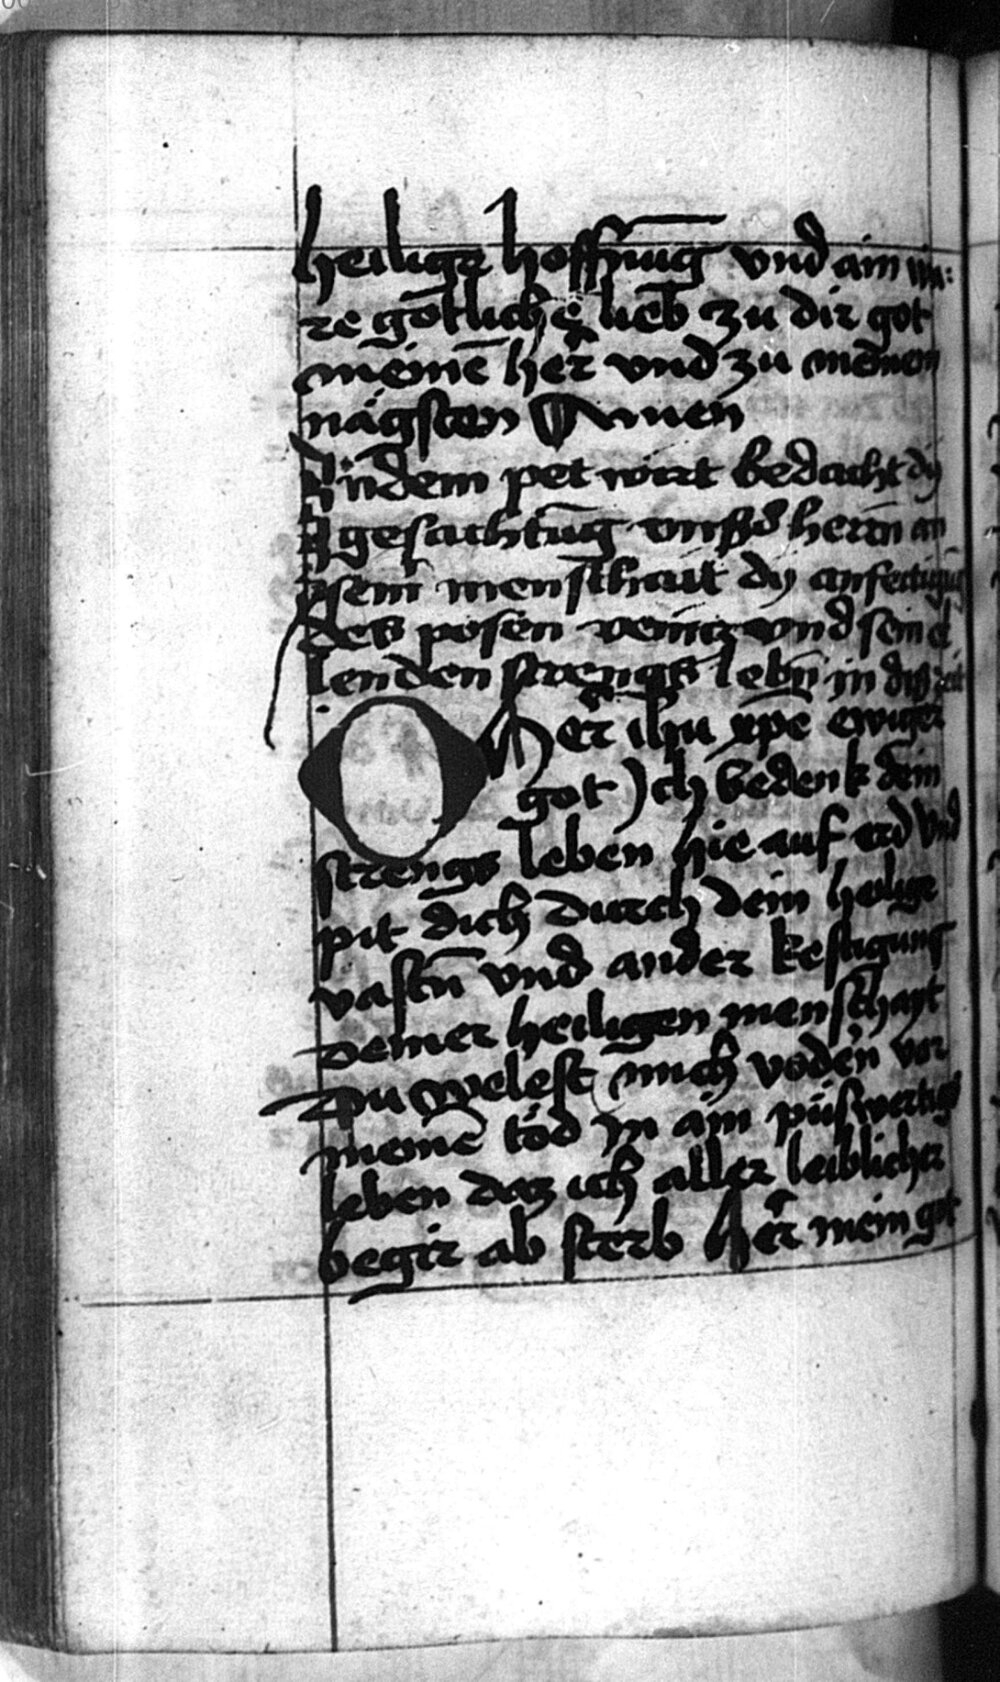 heilige hoffnūg vnd ain wa:
re gotlich lieb zu dir got
meinē her vnd zu meinem
nägsten Amen
Indem pet wirt bedacht dy
gesuchtūg vnsßs herrn an
sein menschait dy anfectūg
des posen veintz vnd sein el
lenden strengs lebn in diß zeit
O Her ihu xpē ewiger
got Ich bedenk dein
strengs leben hie auf erd vnd
pit dich durch dein heilige
vastn vnd ander kestigung
deiner heiligen menschayt
Du welest mich vodern vor
meinē tod in ain puswertigs
leben daz ich aller leiblicher
begir ab sterb Her mein got